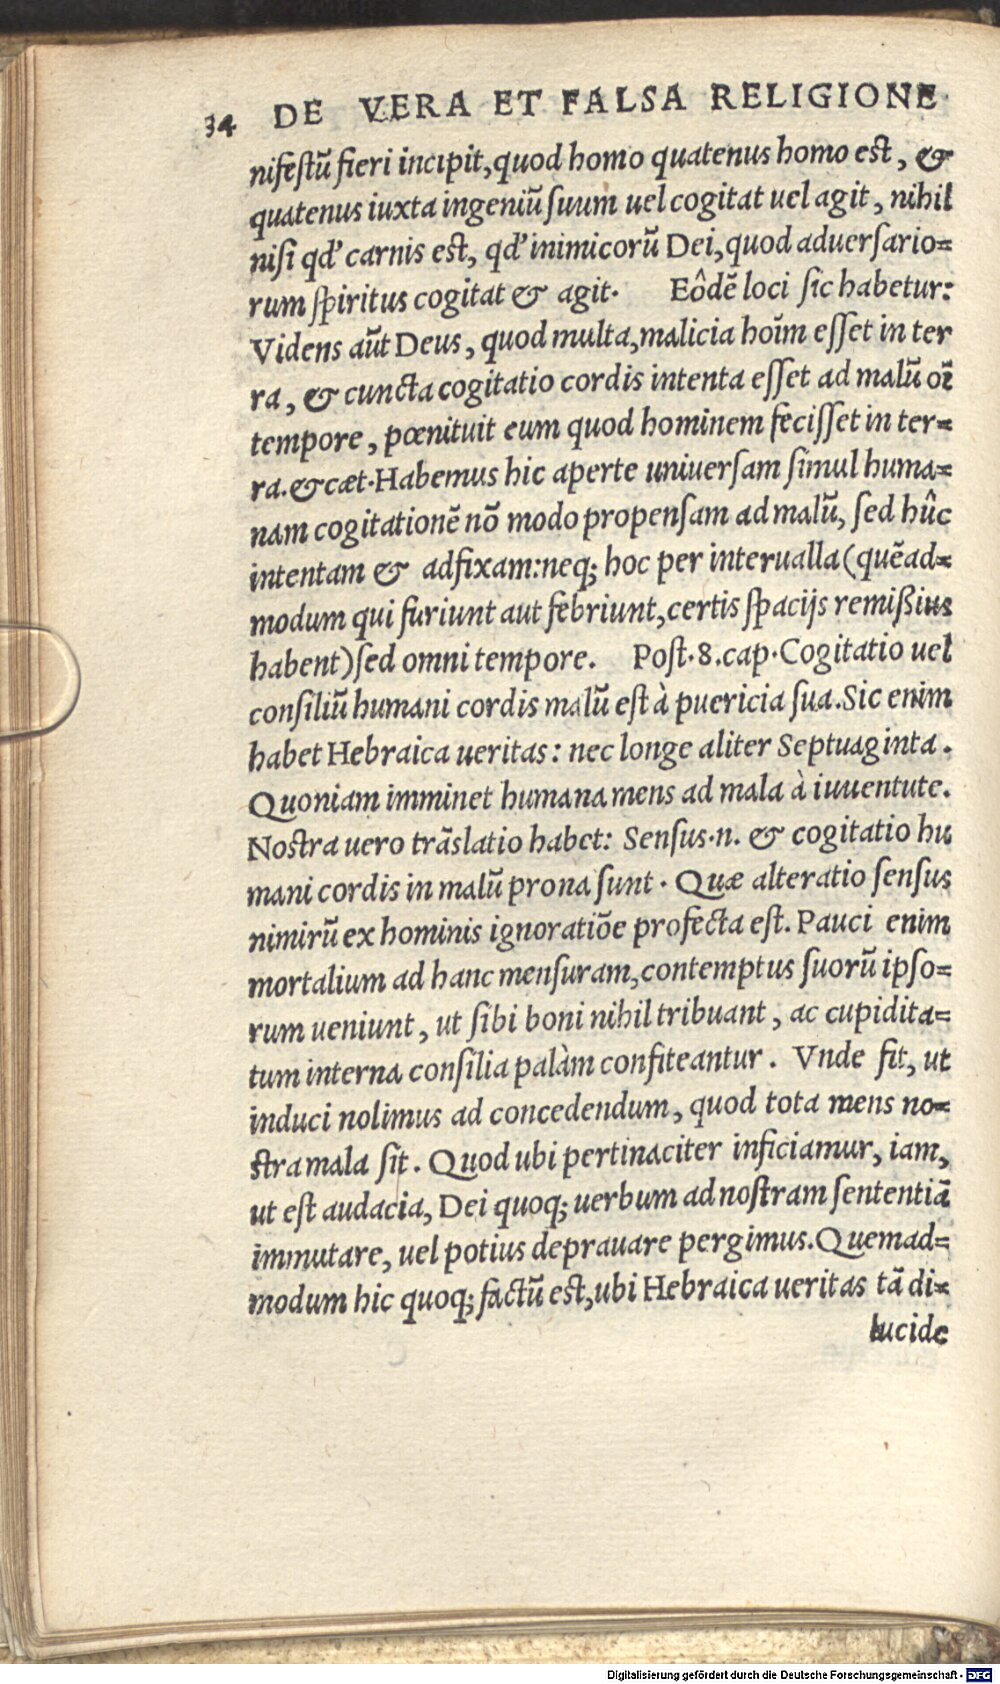 34 DE VERA ET FALSA RELIGIONE
nifestũ fieri incipit, quod homo quatenus homo est, &
quatenus iuxta ingeniũ suum uel cogitat uel agit, nihil
nisi qđ carnis est, qđ inimicorũ Dei, quod aduersario=
rum spiritus cogitat & agit. Eôdẽ loci sic habetur:
Videns aũt Deus, quod multa, malicia hoĩm esset in ter
ra, & cuncta cogitatio cordis intenta esset ad malũ oĩ
tempore, pœnituit eum quod hominem fecisset in ter=
ra. & cæt. Habemus hic aperte uniuersam simul huma=
nam cogitationẽ nõ modo propensam ad malũ, sed hûc
intentam & adfixam: neq; hoc per interualla (quẽad=
modum qui furiunt aut febriunt, certis spacijs remißius
habent) sed omni tempore. Post. 8. cap. Cogitatio uel
consiliũ humani cordis malũ est à puericia sua. Sic enim
habet Hebraica ueritas: nec longe aliter Septuaginta.
Quoniam imminet humana mens ad mala à iuuentute.
Nostra uero trãslatio habet: Sensus .n. & cogitatio hu
mani cordis in malũ prona sunt. Quæ alteratio sensus
nimirũ ex hominis ignoratiõe profecta est. Pauci enim
mortalium ad hanc mensuram, contemptus suorũ ipso=
rum ueniunt, ut sibi boni nihil tribuant, ac cupidita=
tum interna consilia palàm confiteantur. Vnde fit, ut
induci nolimus ad concedendum, quod tota mens no=
stra mala sit. Quod ubi pertinaciter inficiamur, iam,
ut est audacia, Dei quoq; uerbum ad nostram sententiã
immutare, uel potius deprauare pergimus. Quemad=
modum hic quoq; factũ est, ubi Hebraica ueritas tã di=
lucide
Digitalisierung gefördert durch die Deutsche Forschungsgemeinschaft - DFG